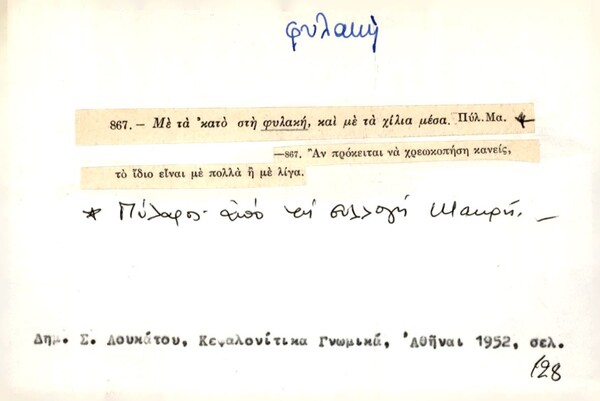 φυλακή
867. — Μὲ τὰ ’κατὸ στὴ φυλακή, καὶ μὲ τὰ χίλια μέσα. Πύλ.Μα. *
—867. Ἂν πρόκειται νὰ χρεωκοπήση κανείς,
τὸ ἴδιο εἶναι μὲ πολλὰ ἢ μὲ λίγα.
* Πύλαρος· ἀπὸ τὴ συλλογὴ Μακρῆ. —
Δημ. Σ. Λουκάτου, Κεφαλονίτικα Γνωμικά, Ἀθῆναι 1952, σελ.
128